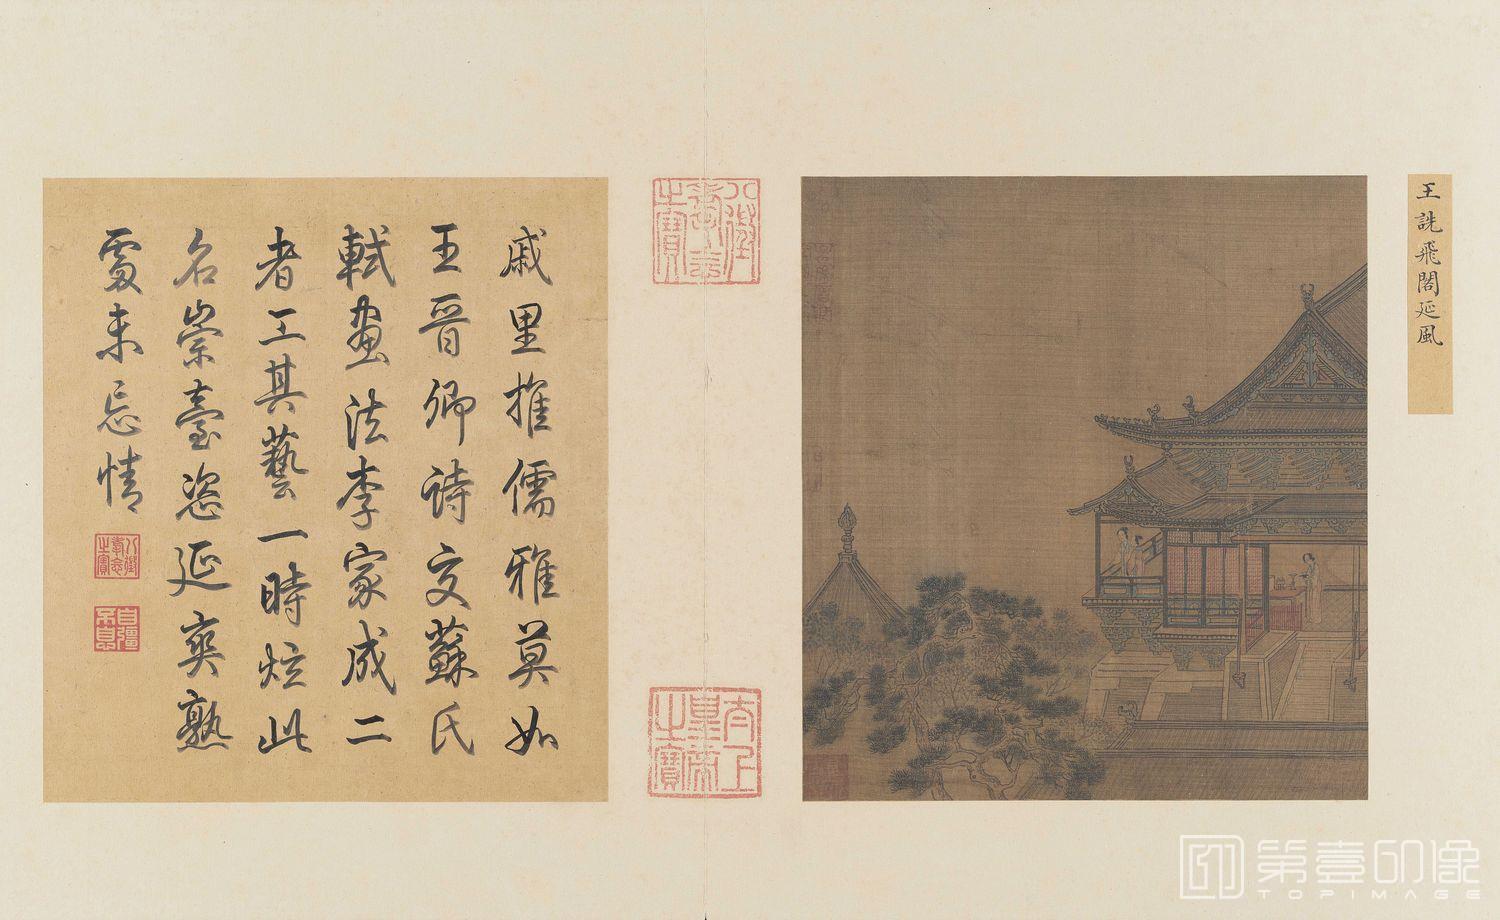 王詵飛閣延風
戚里推儒雅莫如
王晉卿詩文蘇氏
軾畫法李家成二
者工其藝一時炫此
名崇臺恣延爽熟
處未忘情
八徵耄念之寶
自彊不息
八徵耄念之寶
太上皇帝之寶
第壹印像
TOPIMAGE